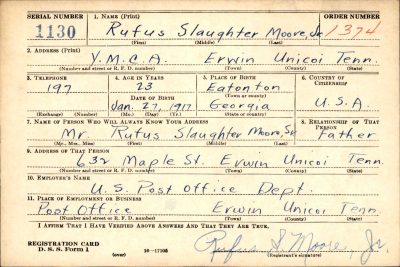 SERIAL NUMBER 1. NAME (Print) ORDER NUMBER
1130 Rufus Slaughter Moore, Jr 1374
(First) (Middle) (Last)
2. ADDRESS (Print)
Y.M.C.A. Erwin Unicoi Tenn.
(Number and street or R. F. D. number) (Town) (County) (State)
3. TELEPHONE 4. AGE IN YEARS 5. PLACE OF BIRTH 6. COUNTRY OF CITIZENSHIP
197 23 Eatonton
DATE OF BIRTH (Town or county)
Jan. 27, 1917 Georgia U.S.A.
(Exchange) (Number) (Mo.) (Day) (Yr.) (State or country)
7. NAME OF PERSON WHO WILL ALWAYS KNOW YOUR ADDRESS 8. RELATIONSHIP OF THAT PERSON
Mr. Rufus Slaughter Moore, Sr Father
(Mr., Mrs., Miss) (First) (Middle) (Last)
9. ADDRESS OF THAT PERSON
632 Maple St. Erwin Unicoi Tenn.
(Number and street or R. F. D. number) (Town) (County) (State)
10. EMPLOYER'S NAME
U.S. Post Office Dept.
11. PLACE OF EMPLOYMENT OR BUSINESS
Post Office Erwin Unicoi Tenn.
(Number and street or R. F. D. number) (Town) (County) (State)
I AFFIRM THAT I HAVE VERIFIED ABOVE ANSWERS AND THAT THEY ARE TRUE.
REGISTRATION CARD
D. S. S. Form 1 (over) 16—17105 Rufus S. Moore, Jr.
(Registrant's signature)